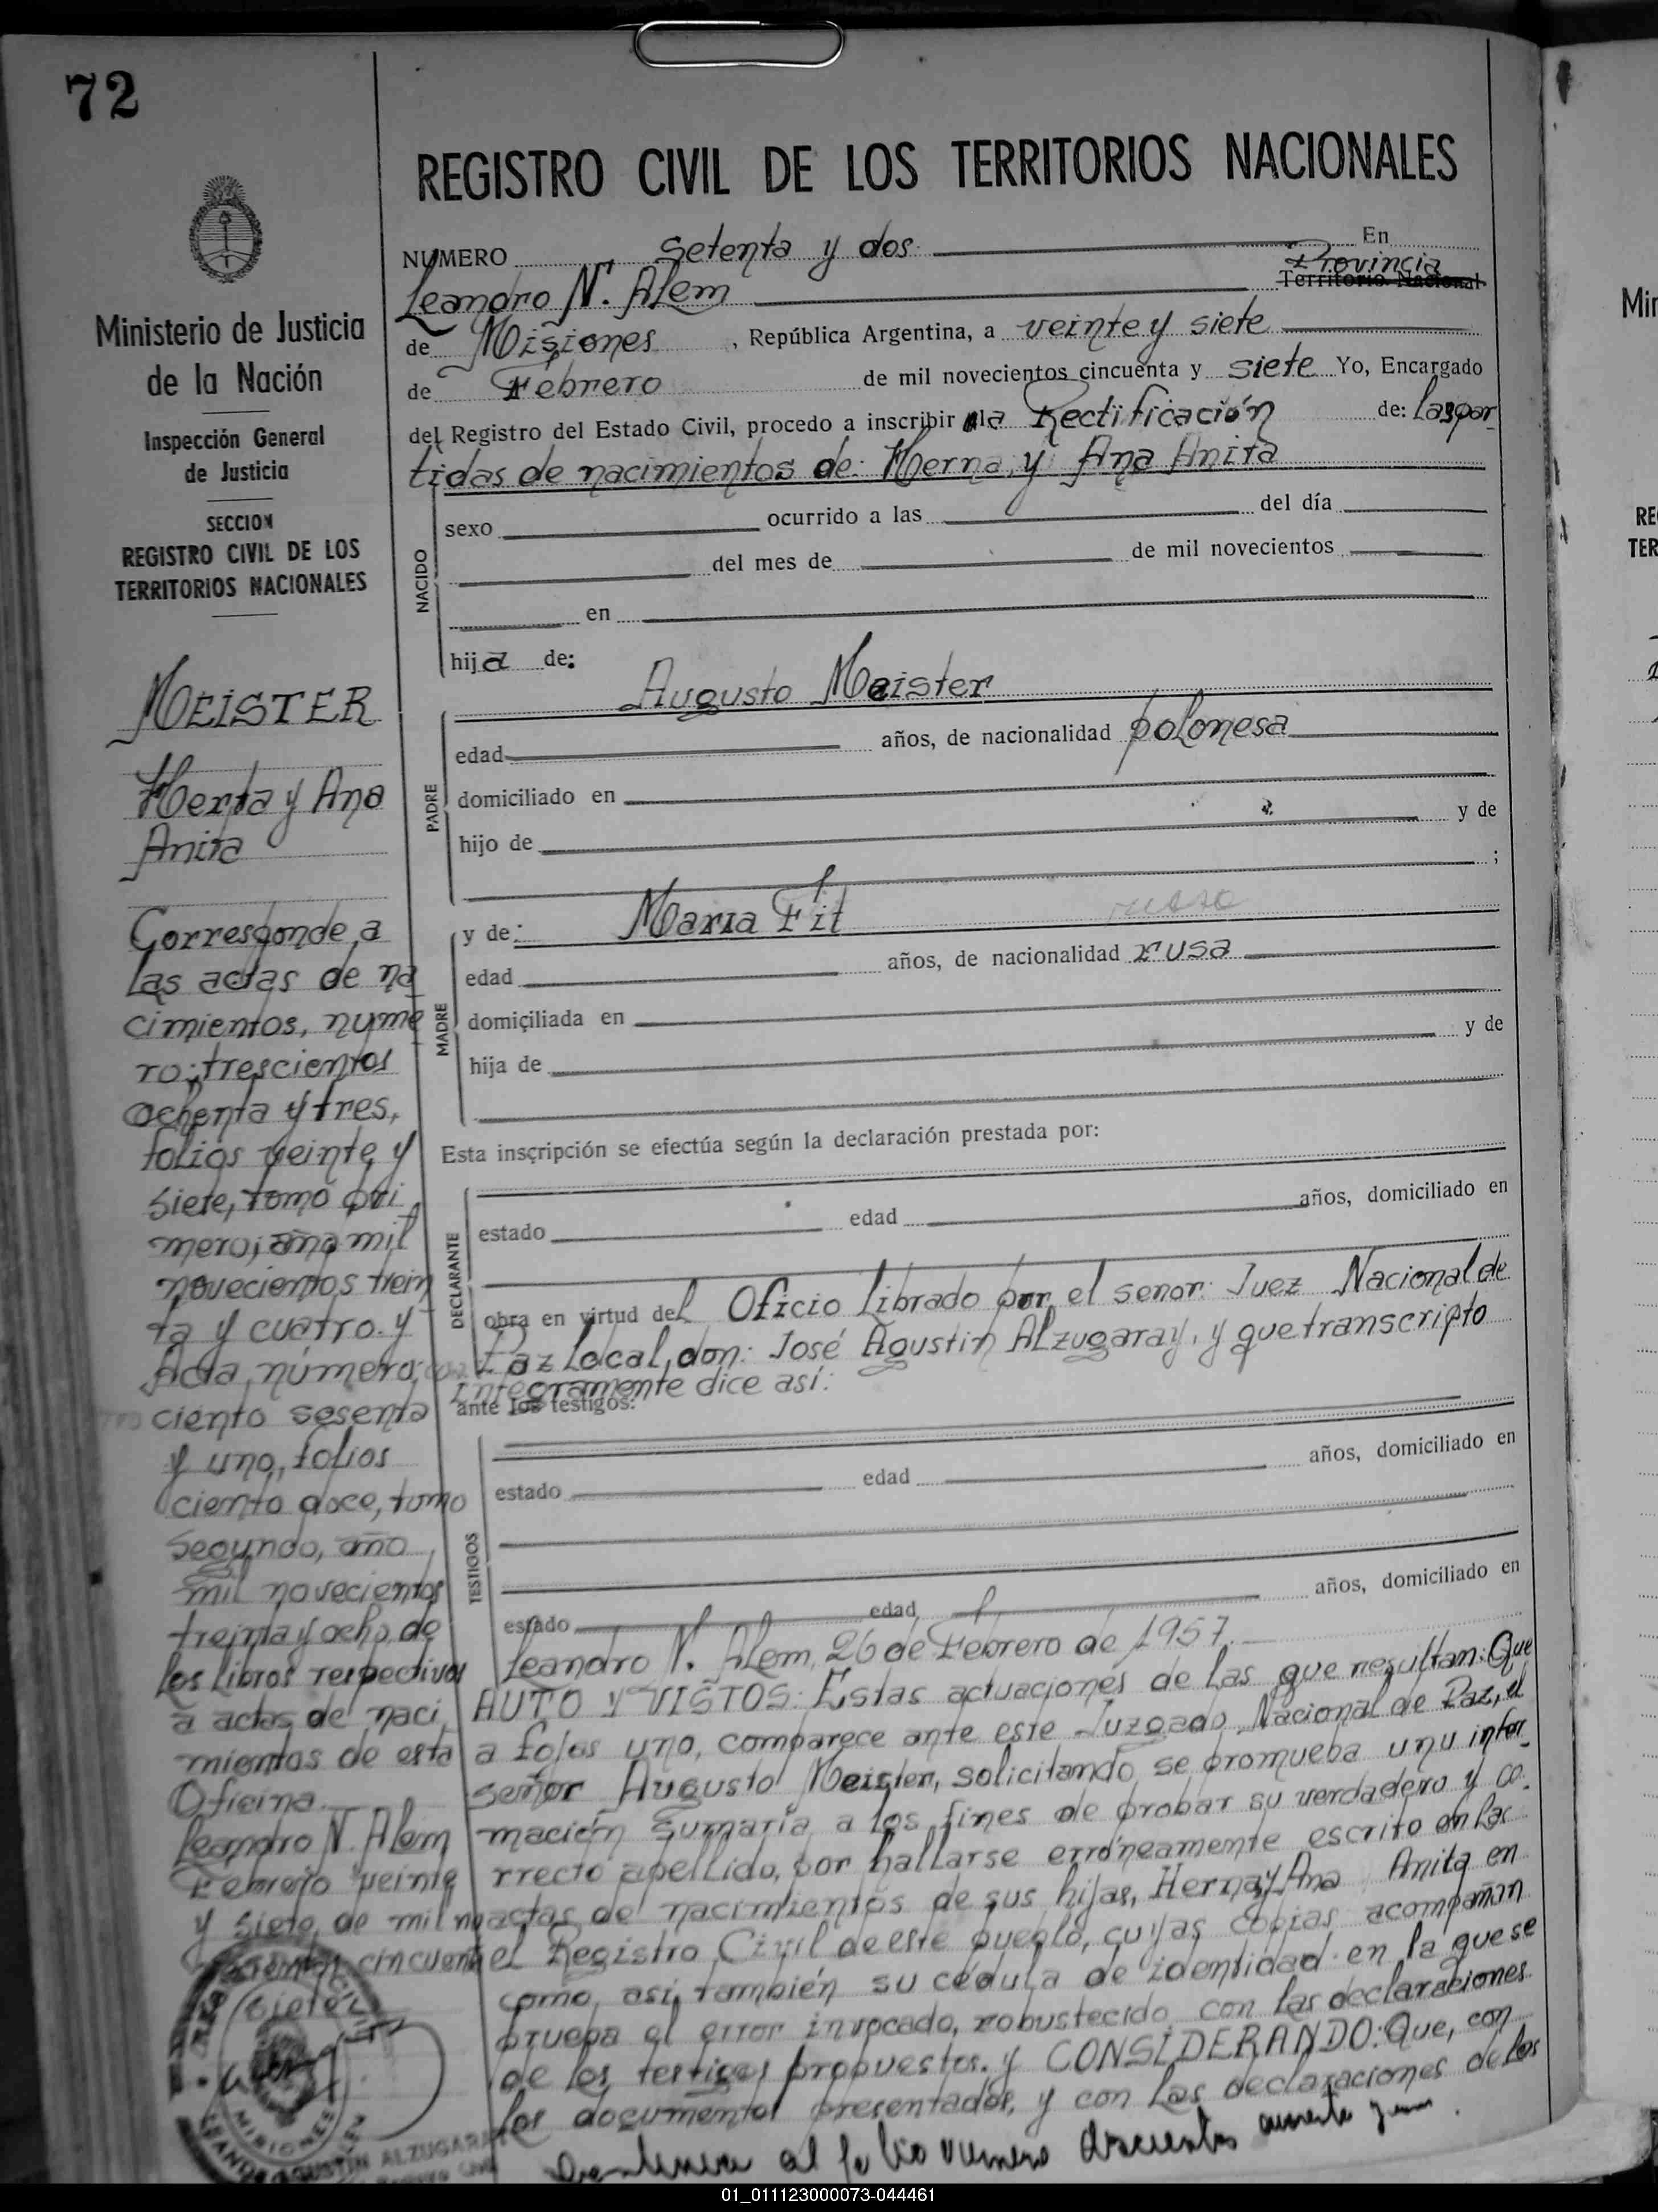 72
REGISTRO CIVIL DE LOS TERRITORIOS NACIONALES
Ministerio de Justicia
de la Nación
Inspección General
de Justicia
SECCION
REGISTRO CIVIL DE LOS
TERRITORIOS NACIONALES
MEISTER
Herta y Ana
Anita
Corresponde a
las actas de na
cimientos, nume
ro: trescientos
ochenta y tres,
folios veinte y
siete, tomo pri
mero, año mil
novecientos trein
ta y cuatro. y
Acta número
ciento sesenta
y uno, folios
ciento doce, tomo
segundo, año
mil novecientos
treinta y ocho, de
los libros respectivos
a actas de naci
mientos de esta
Oficina.
Leandro N. Alem
Febrero veinte
y siete, de mil no
cincuenta
siete
NUMERO Setenta y dos En
Leandro N. Alem Provincia Territorio Nacional
de Misiones, República Argentina, a veinte y siete
de Febrero de mil novecientos cincuenta y siete Yo, Encargado
del Registro del Estado Civil, procedo a inscribir la Rectificación de: las par
tidas de nacimientos de: Herna, y Ana Anita
NACIDO
sexo ocurrido a las del día
del mes de de mil novecientos
en
hija de:
PADRE
Augusto Meister
edad años, de nacionalidad polonesa
domiciliado en
hijo de y de
;
MADRE
y de: Maria Fit rusa
edad años, de nacionalidad rusa
domiciliada en
hija de y de
Esta inscripción se efectúa según la declaración prestada por:
DECLARANTE
estado edad años, domiciliado en
obra en virtud del Oficio librado por el señor: Juez Nacional de
Paz local, don: José Agustin Alzugaray, y que transcripto
integramente dice así:
ante los testigos:
TESTIGOS
estado edad años, domiciliado en
estado edad años, domiciliado en
Leandro N. Alem, 26 de Febrero de 1957.
AUTO Y VISTOS: Estas actuaciones de las que resultan: Que
a fojas uno, comparece ante este Juzgado Nacional de Paz, el
señor Augusto Meister, solicitando se promueba unu infor
mación sumaria a los fines de probar su verdadero y co
rrecto apellido, por hallarse erróneamente escrito en las
actas de nacimientos de sus hijas, Herna y Ana Anita en
el Registro Civil de este pueblo, cuyas copias acompañan
como, así también su cédula de identidad en la que se
prueba el error invocado, robustecido con las declaraciones
de los testigos propuestos. y CONSIDERANDO: Que, con
los documentos presentados, y con las declaraciones de los
al folio numero doscientos
MISIONES
AGUSTIN ALZUGARAY
01_011123000073-044461